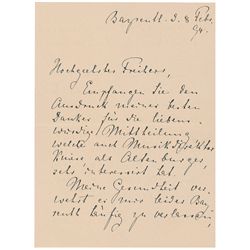 Bayreuth. d. 8 Febr.
94.
Hochgeehrter Freiherr,
Empfangen Sie den
Ausdruck meines besten
Dankes für die liebens-
würdige Mittheilung
welche auch Musikdirektor
Kniese als Altenburger,
sehr interessirt hat.
Meine Gesundheit ver-
wehrt es mir leider Bay-
reuth häufig zu verlassen,